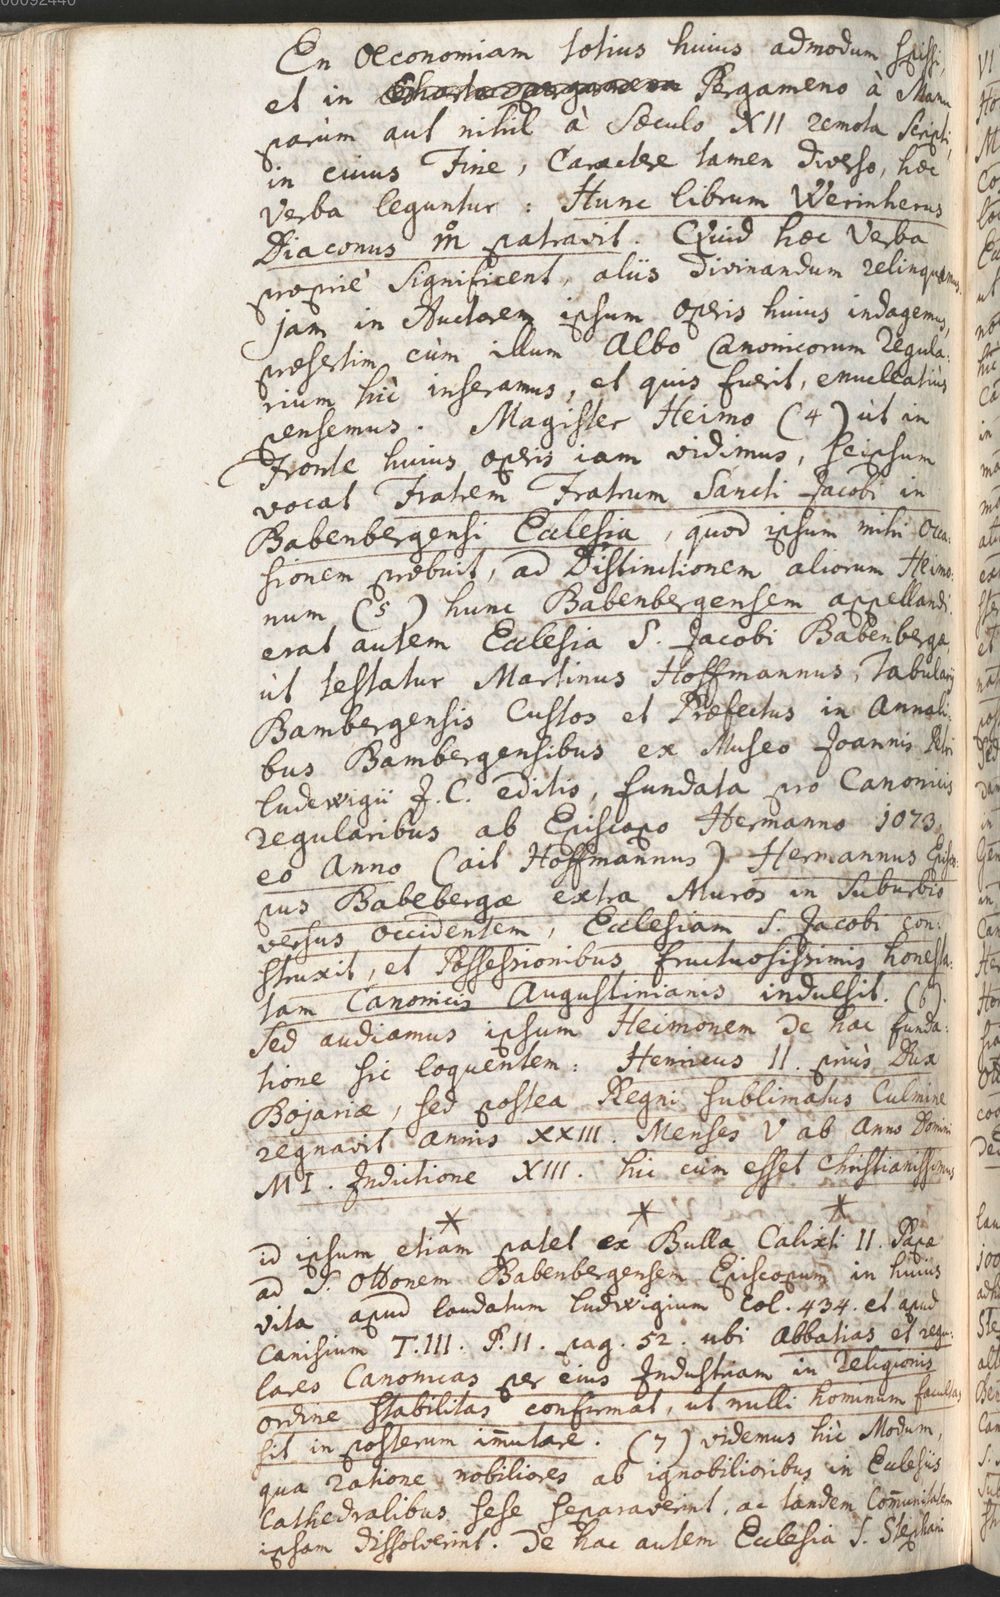 00092440
En Oeconomiam totius huius admodum spissi,
et in Pergameno à Manu
parùm aut nihil à Saeculo XII remota scripti,
in cuius Fine, Caractere tamen diverso, haec
Verba leguntur: Hunc librum Werinherus
Diaconus patravit. Quid haec Verba
propriè significent, aliis divinandum relinquamus.
jam in Auctorem ipsum operis huius indagemus,
praesertim cùm illum Albo Canonicorum Regula-
rium hic inseramus, et quis fuerit, enucleatiùs
pensemus. Magister Heimo (4) ùt in
Fronte huius operis iam vidimus, seipsum
vocat Fratrem Fratrum Sancti Jacobi in
Babenbergensi Ecclesia, quod ipsum mihi Occa-
sionem praebuit, ad Distinctionem aliorum Heimo-
num (5) hunc Babenbergensem appellandi.
erat autem Ecclesia S. Jacobi Babenbergae,
ùt testatur Martinus Hoffmannus, Tabularij
Bambergensis Custos et Praefectus in Annali-
bus Bambergensibus ex Museo Joannis Petri
Ludewigii J.C. editis, fundata pro Canonicis
regularibus ab Episcopo Hermanno 1073.
eo Anno (ait Hoffmannus) Hermannus Episco-
pus Babebergae extra Muros in Suburbio
versus occidentem, Ecclesiam S. Jacobi con-
struxit, et Possessionibus fructuosissimis honesta-
tam Canonicis Augustinianis indulsit. (6).
Sed audiamus ipsum Heimonem de hac funda-
tione sic loquentem: Henricus II. priùs Dux
Bojariae, sed postea Regni sublimatus Culmine
regnavit annis XXIII. Menses V ab Anno Domini
MI. Indictione XIII. hic cùm esset Christianissimus
* * *
id ipsum etiam patet ex Bulla Calixti II. Papae
ad S. Ottonem Babenbergensem Episcopum in huius
vita apud laudatum Ludwigium col. 434. et apud
Canisium T.III. P.II. pag. 52. ubi abbatias et regu-
lares Canonicas per eius Industriam in Religionis
ordine stabilitas confirmat, ut nulli hominum facultas
sit in posterum im̄utare. (7) videmus hic Modum,
qua ratione nobiliores ab ignobilioribus in Ecclesiis
Cathedralibus sese separaverint, ac tandem Com̄unitatem
ipsam dissolverint. De hac autem Ecclesia S. Stephani